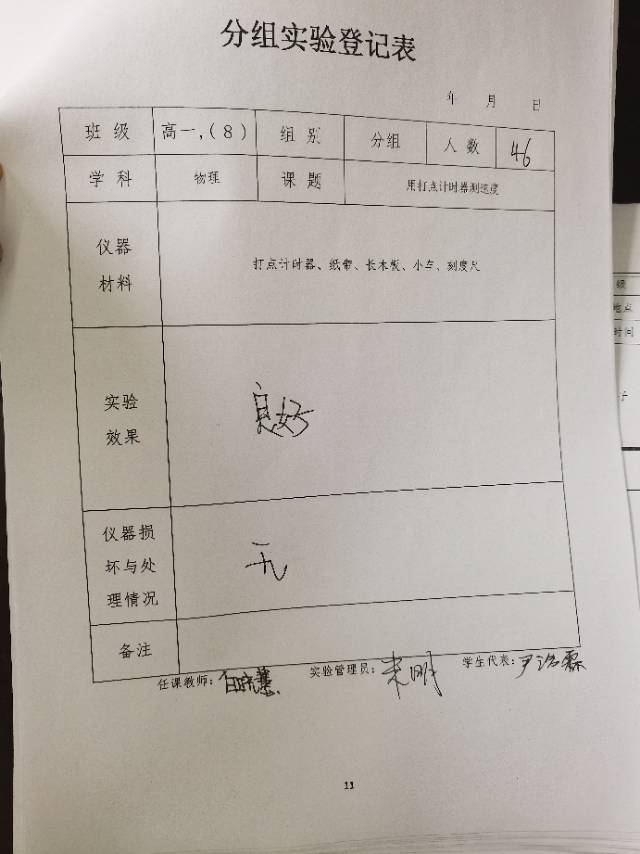 分组实验登记表
年 月 日
班级 高一,(8) 组别 分组 人数 46
学科 物理 课题 用打点计时器测速度
仪器材料 打点计时器、纸带、长木板、小车、刻度尺
实验效果 良好
仪器损坏与处理情况 无
备注
任课教师: 实验管理员: 朱明 学生代表:
11
级
地点
时间
子